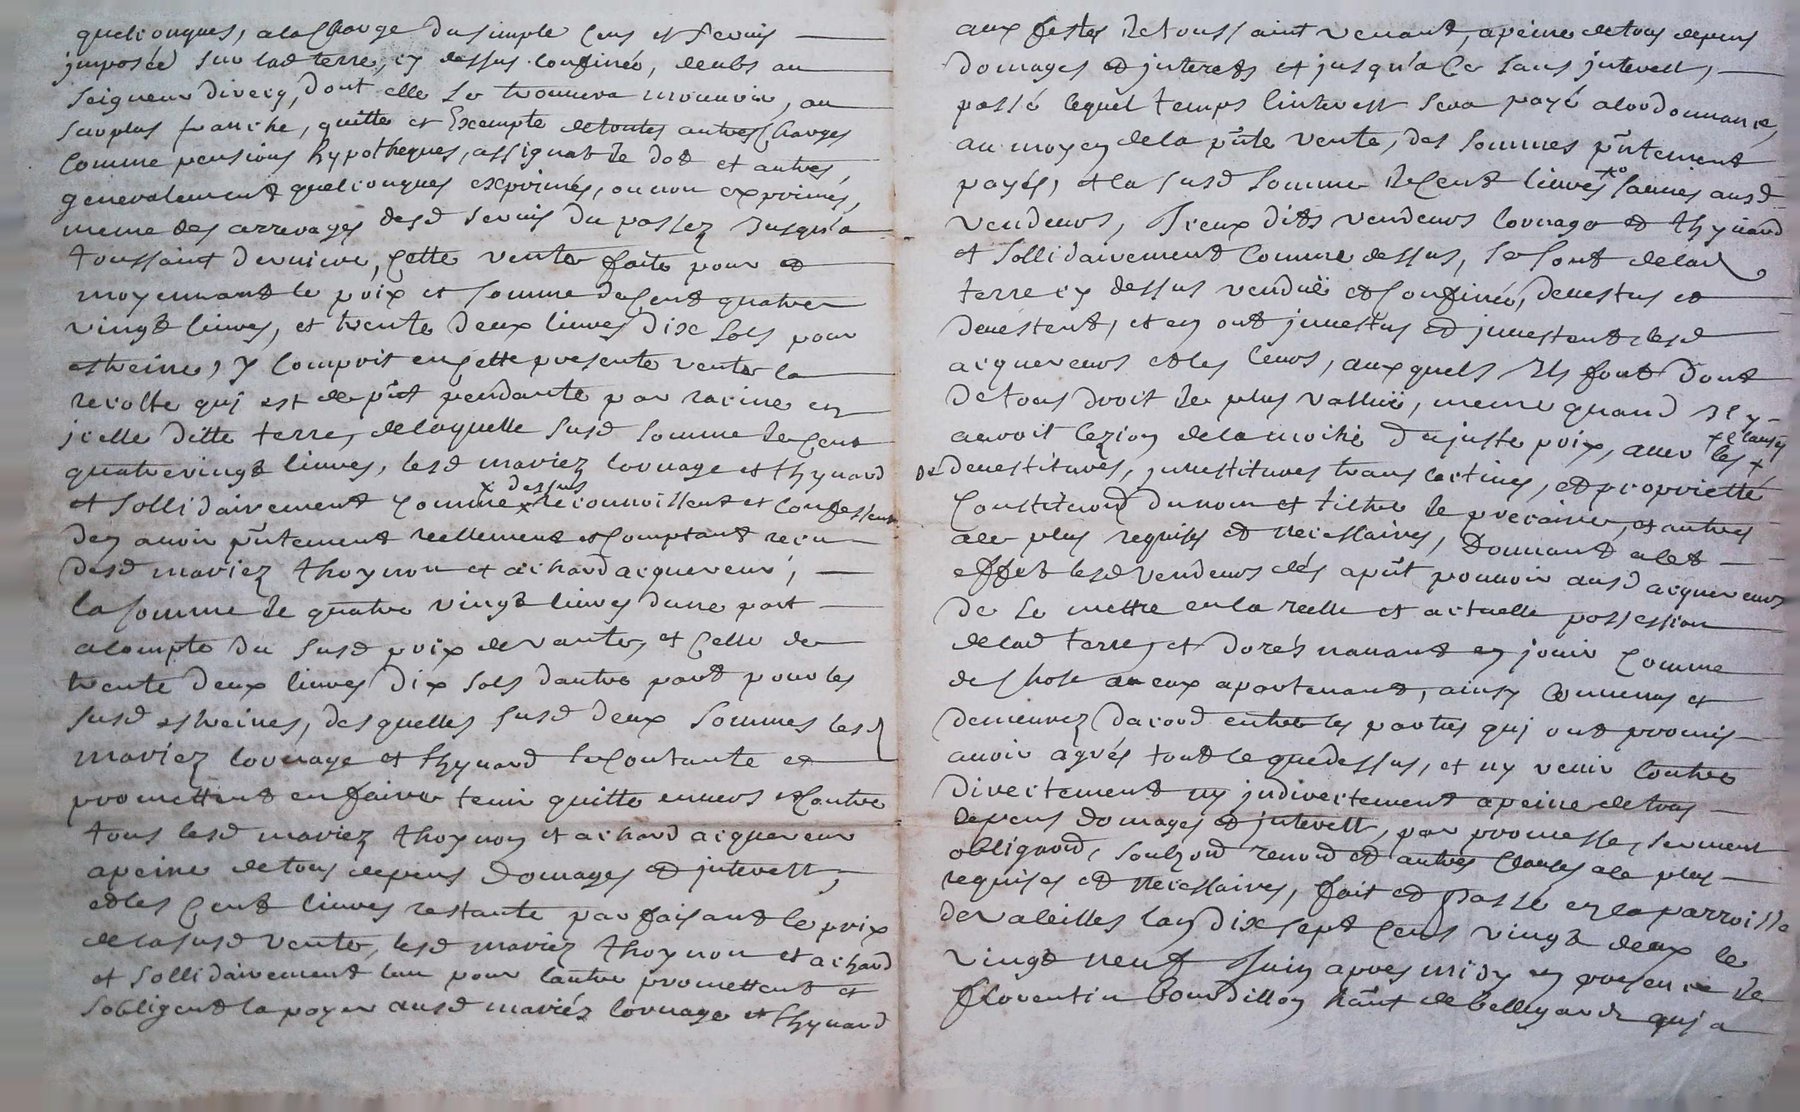 quelconques, a la charge du simple cens et servis
imposée sur lad terre, cy dessus confinée, deubs au
seigneur divery, dont elle se trouvera mouvoir, au
surplus franche, quitte et Exempte de toutes autres charges
comme pensions hypotheques, assignat de dot et autres,
generalement quelconques exprimés, ou non exprimés,
meme des arrerages desd servis du passez Jusqu'a
toussaint derniere, Cette vente faite pour et
moyennant le prix et somme de Cent quatre
vingt livres, et trente deux livres dix sols pour
estreine, y Comprit en Cette presente vente la
recolte qui est de pnt pendante par racine en
jcelle ditte terre, de laquelle susd somme de Cent
quatrevingt livres, lesd mariez lornage et thynard
et sollidairement Comme x dessus reconnoissent et Confessent
den avoir pntement reellement et Comptant recu
desd mariez thoynon et achard acquereur,
la somme de quatre vingt livres dune part
a Compte du susd prix de vante, et Celle de
trente deux livres dix sols dautre part pour les
susd estreines, desquelles susd deux sommes lesd
mariéz lornage et thynard se Contante et
promettent en faire tenir quitte envers et Contre
tous lesd mariez thoynon et achard acquereur
a peine de tous depens domages et jnterest,
et les Cent livres restante parfaisant le prix
de la susd vente, lesd mariez thoynon et achard
et sollidairement lun pour lautre promettent et
sobligent la payer ausd mariéz lornage et thynard
aux festes de toussaint venant, a peine de tous depens
domages et jnterets et jusqu'a Ce sans jnterest,
passé lequel temps linterest sera payé a lordonnance,
au moyen de la pnte vente, des sommes pntement
payés, et la susd somme de Cent livres ausd
vendeurs, Jceux dits vendeurs lornage et thynard
et sollidairement Comme dessus, se sont de lad
terre cy dessus venduë et Confinée, devestus et
devestent, et en ont jnvestus et jnvestent lesd
acquereurs et les leurs, auxquels Ils font dont
de tous droit de plus vallüe, meme quand Il y
auroit lezion de la moitié du juste prix, avec les x x clauses
de devestitures, jnvestitures translactives, et proprietté
Constitond du nom et tiltre de precaire, et autres
a ce plus requises et necessaires, Donnant a Cet
effet lesd vendeurs dés apnt pouvoir ausd acquereurs
de se mettre en la reelle et actuelle possession
de lad terre, et dorés navant en jouir Comme
de Chose a eux apartenant, ainsy Convenus et
demeurez dacord entre les parties quj ont promis
avoir agrés tout le que dessus, et ny venir Contre
directement ny jndirectement a peine de tous
depens domages et jnterest, par promesse, serment
obligaond, soubzond renond et autres Clauses a ce plus
requises et necessaires, fait et Passé en la parroisse
de valeilles lan dix sept Cens vingt deux le
vingt neuf Juin apres midy en presence de
florentin bourdillon hant de bellegarde quj a